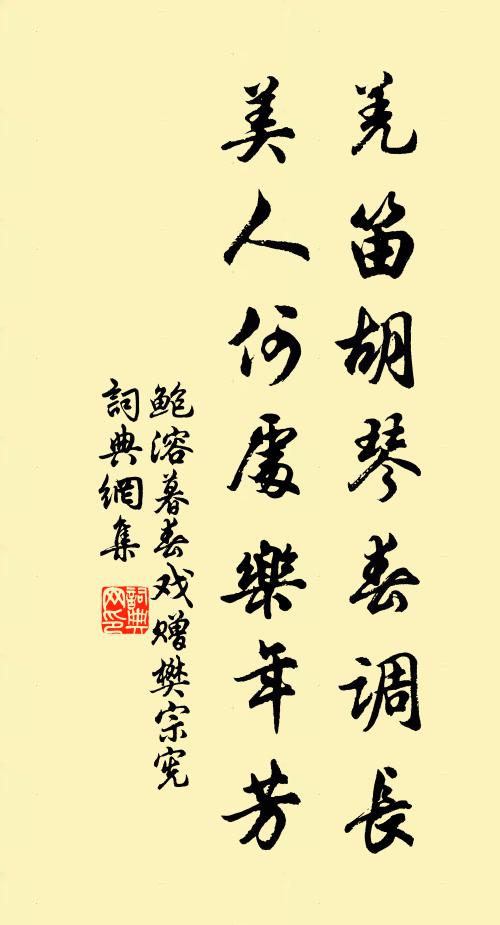 羌笛胡琴春调長
美人何處樂年芳
鲍溶暮春戏赠樊宗宪
詞典網集
詞典网印